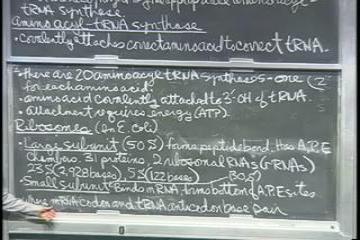 tRNA synthase
Aminoacyl-tRNA synthase
• Covalently attaches correct amino acid to correct tRNA.
• there are 20 aminoacyl tRNA synthases - one
for each amino acid.
• amino acid covalently attached to 3'-OH of tRNA.
• attachment requires energy (ATP)
Ribosomes (in E. coli)
• Large subunit (50S) forms peptide bond. Has A,P,E
chambers. 31 proteins, 2 ribosomal RNAs (rRNAs)
23S (2,920 bases), 5S (122 bases)
• Small subunit (30S) Binds mRNA, forms bottom of A,P,E sites
where mRNA codon and tRNA anticodon base pair